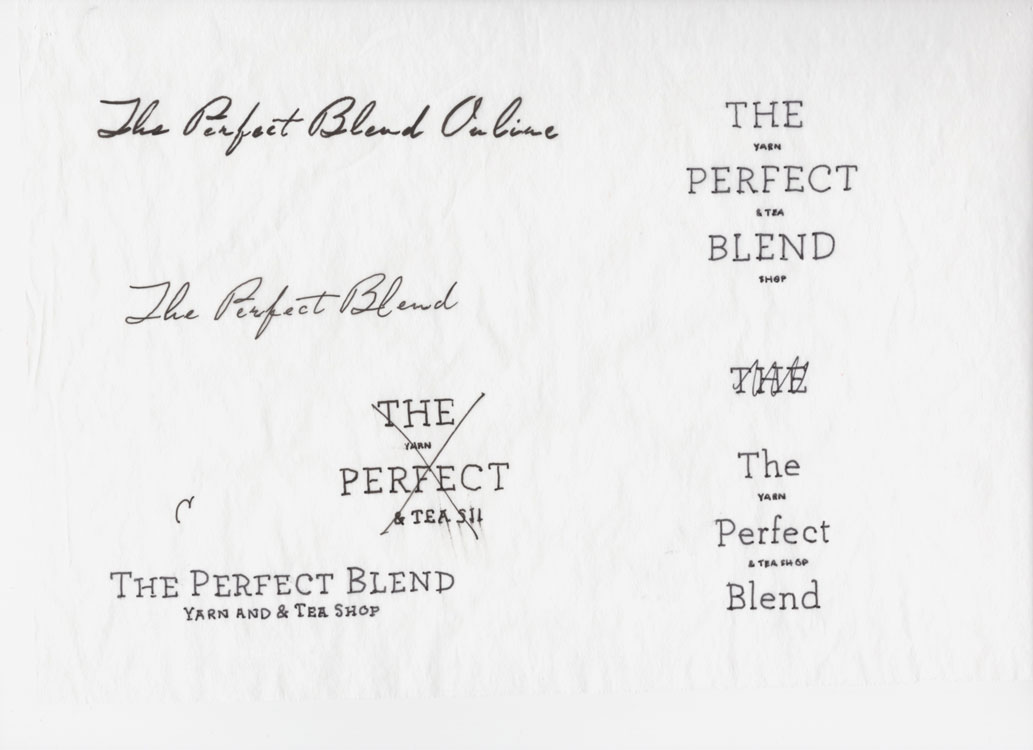 The Perfect Blend Online
The Perfect Blend
THE
YARN
PERFECT
& TEA SH
THE PERFECT BLEND
YARN AND & TEA SHOP
THE
YARN
PERFECT
& TEA
BLEND
SHOP
THE
The
YARN
Perfect
& TEA SHOP
Blend